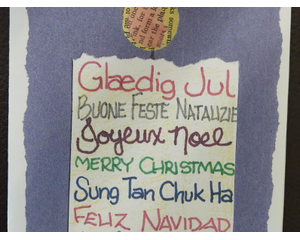 Glædig Jul
BUONE FESTE NATALIZIE
Joyeux noel
MERRY CHRISTMAS
Sung Tan Chuk Ha
FELIZ NAVIDAD